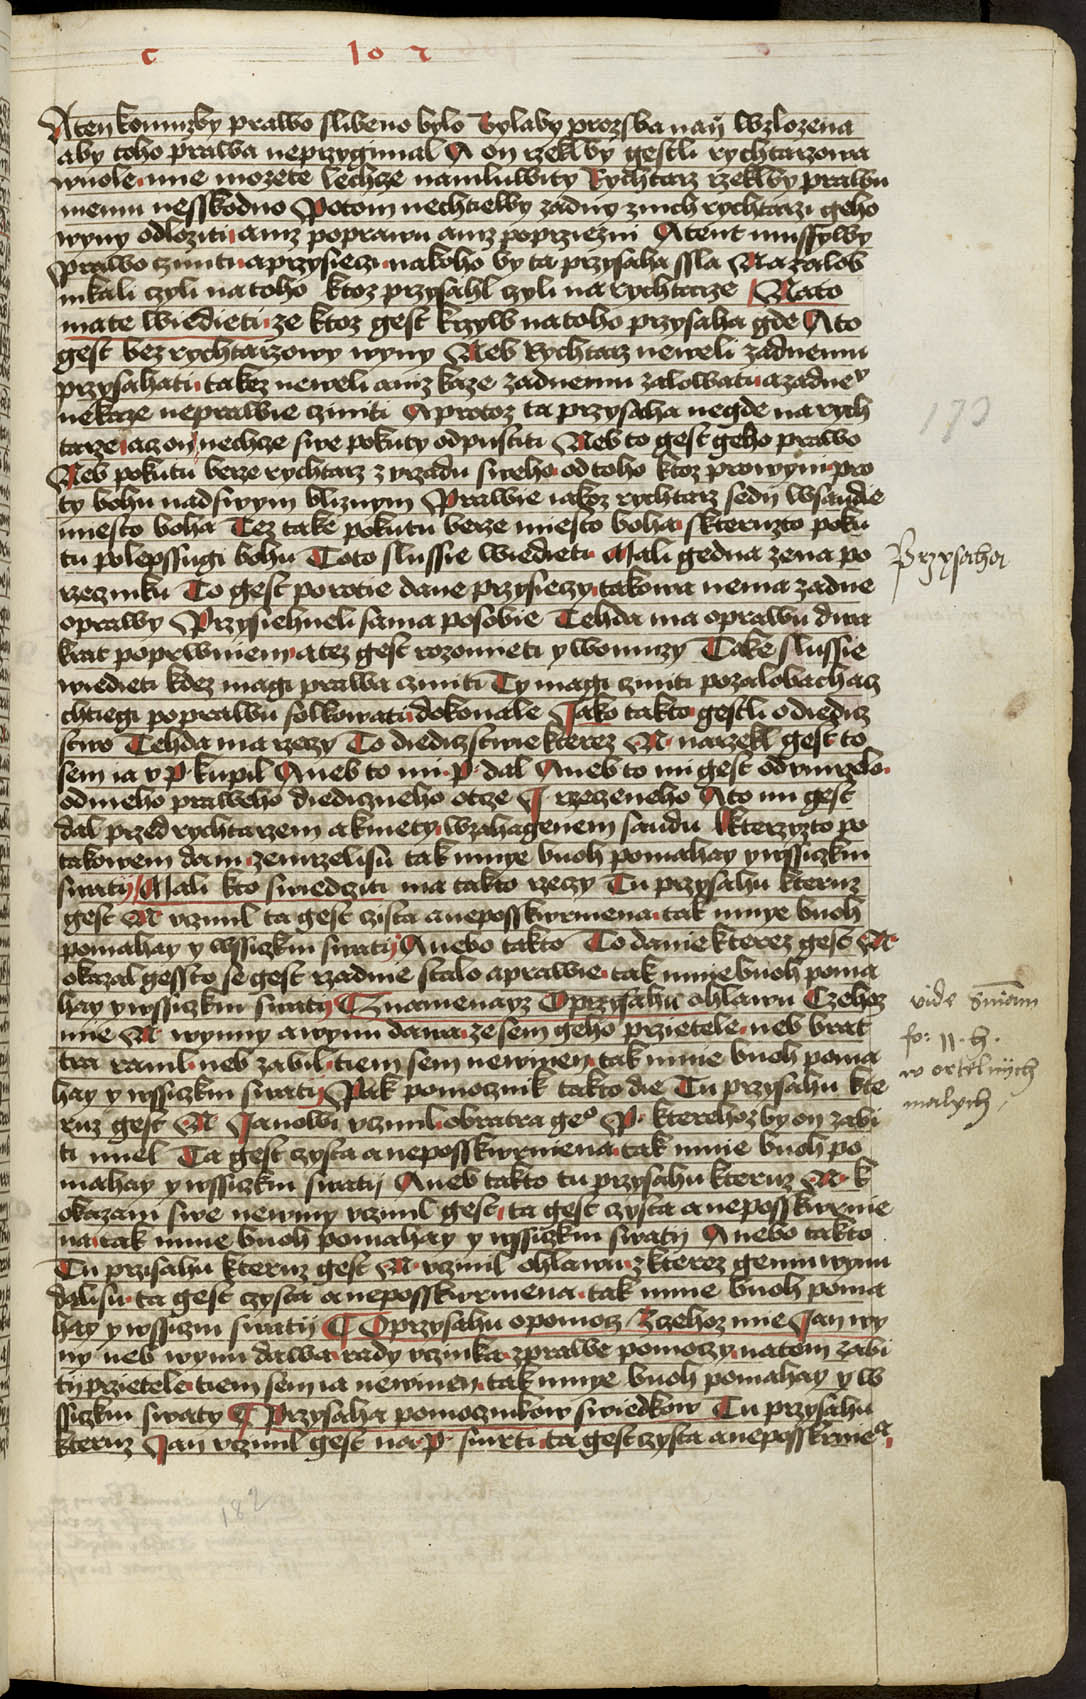 c 10 2
A ten komuzby prawo slibeno bylo Bylaby prozsba nan wzlozena
aby toho prawa neprzygimal A on rzeklby gestli rychtarzowa
wuole mne mozete lechcze namluwity Rychtarz rzeklby prawu
memu nesskodno Potom nechtielby zadny z nich rychtarzi geho
wyny odloziti aniz poprawu aniz poprziezni A tent mussylby
Prawo cziniti a przysieczi na koho by ta przysaha ssla Na zalob
nikali czyli na toho ktoz przysahl czyli na rychtarze Nato
mate wiedieti ze ktoz gest krzyw na toho przysaha gde A to
gest bez rychtarzowy wyny Neb Rychtarz neweli zadnemu
przysahati takez neweli aniz kaze zadnemu zalowati a zadne
nekaze neprawie cziniti A protoz ta przysaha negde na rych
tarze acz on nechcze swe pokuty odpustiti Neb to gest geho prawo
Neb pokutu berze rychtarz z vrzadu sweho od toho ktoz prowyni pro
ty bohu nad swym bliznym Prawie iakoz rychtarz sedij w saudie
miesto boha Tez take pokutu berze miesto boha skteruzto poku
tu polepssugi bohu Toto slussie wiedieti Mali gedna zena po
rzecznku To gest po rotie dane przysieczy takowa nema zadne
oprawy Przysiehneli sama po sobie Tehda ma oprawu dwa
krat po prwniem a tez gest rozomieti y womuzy Take slussie
wiedieti kdez magi prawa cziniti Ty magi cziniti po zalobach acz
chtiegi po prawu folkowati dokonale Jako takto gestli o diedicz
stwo Tehda ma rzeczy To diediczstwie kterez N narzekl gest to
sem ia v P kupil Aneb to mi P dal Aneb to mi gest od vmrzelo
od meho praweho diediczneho otcze J rzeczeneho A to mi gest
dal przed rychtarzem a kmety w zahagenem saudu kterzyzto po
takowem dani zemrzelisu tak mnye buoh pomahay y wssiczkni
swatij Mali kto swiedcziti ma takto rzeczy Tu przysahu kteruz
gest N vczinil ta gest czista a neposskwrniena tak mnye buoh
pomahay y wssiczkni swatij Anebo takto To danie kterez gest N
okazal gessto se gest rzadnie stalo a prawie tak mnie buoh poma
hay y wssiczkni swatij Znamenayz O przysahu o hlawu Czehoz
mne N wynny a wynu dawa ze sem geho przietele neb brat
tra ranil neb zabil tiem sem newinen tak mnie buoh poma
hay y wssiczkni swatij Pak pomocznik takto die Tu przysahu kte
ruz gest N Janowi vczinil o bratra geo P kterehoz by on zabi
ti miel Ta gest czysta a neposskwrniena tak mnie buoh po
mahay y wssiczkni swatij Aneb takto tu przysahu kteruz N k
okazani swe newiny vczinil gest ta gest czysta a neposskwrnie
na tak mnie buoh pomahay y wssiczkni swatij Anebo takto
Tu przisahu kteruz gest N vczinil o hlawu z kterez gemu wynu
dali su ta gest czysta a neposskwrniena tak mnie buoh poma
hay y wssiczni swatij O przysahu o pomocz Z czehoz mne Jan wy
ny neb wynu dawa rady vczinka z prawe pomoczy na tom zabi
tij przietele tiem sem ia newinen tak mnye buoh pomahay y w
ssiczkni swaty Przysaha pomocznikow swiedkow Tu przysahu
kteruz Jan vczinil gest na P smrti ta gest czysta a neposskrwniea
173
Przysaha
vide
fo: 11. h.
w ortelnijch
malych
182